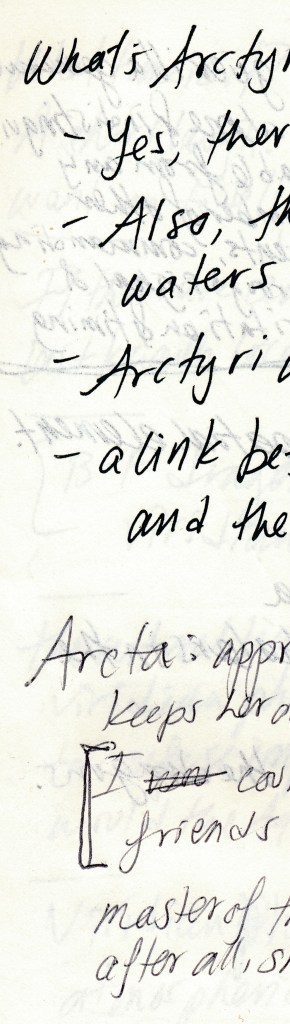 What's Arctyr
- Yes, ther
- Also, th
waters
- Arctyri
- a link be
and the
Arcta: appr
keeps her
[I cou
friends
master of t
after all, s